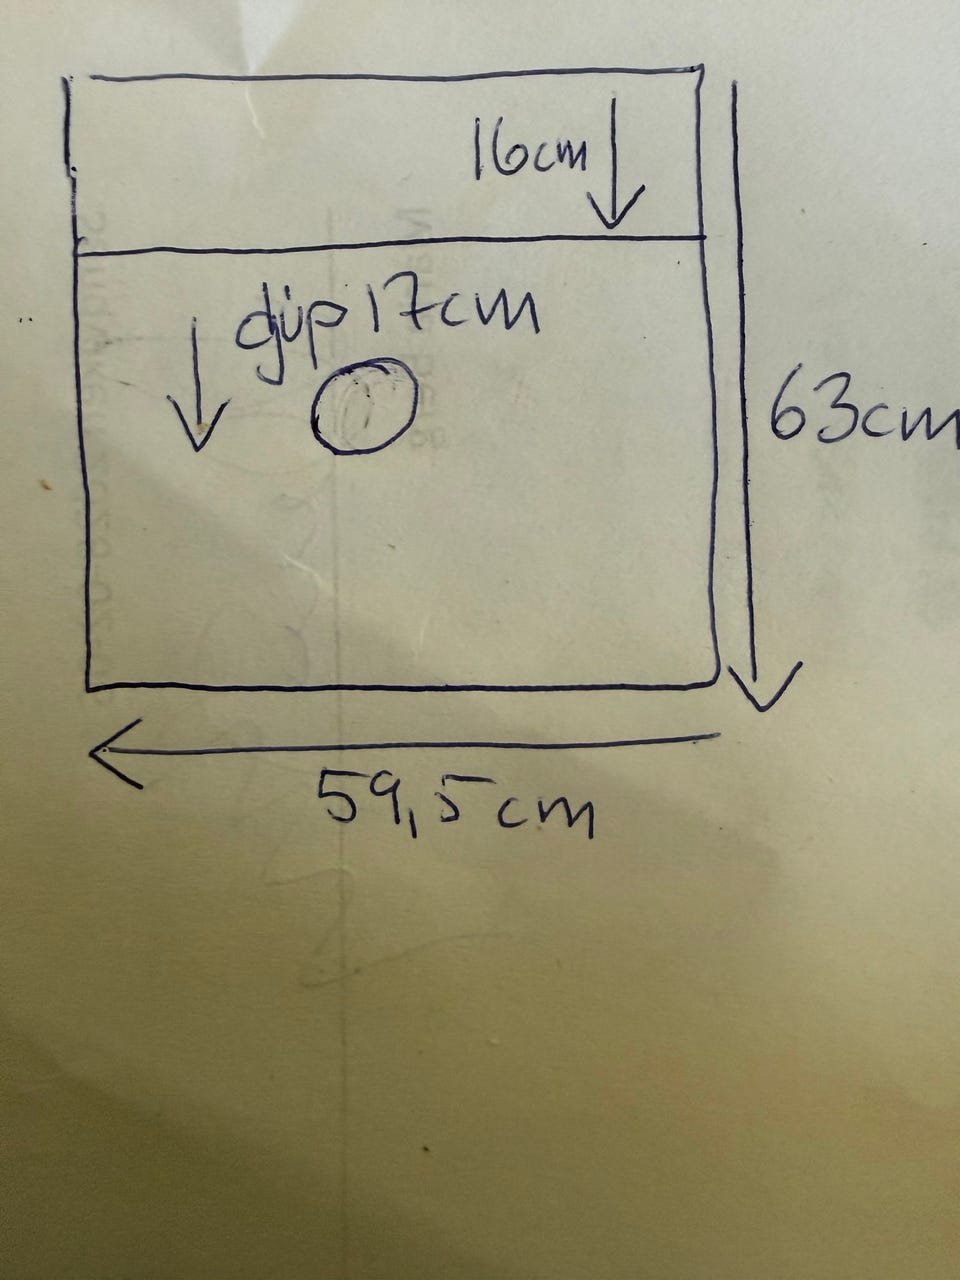 16cm
djup 17cm
63cm
59,5cm